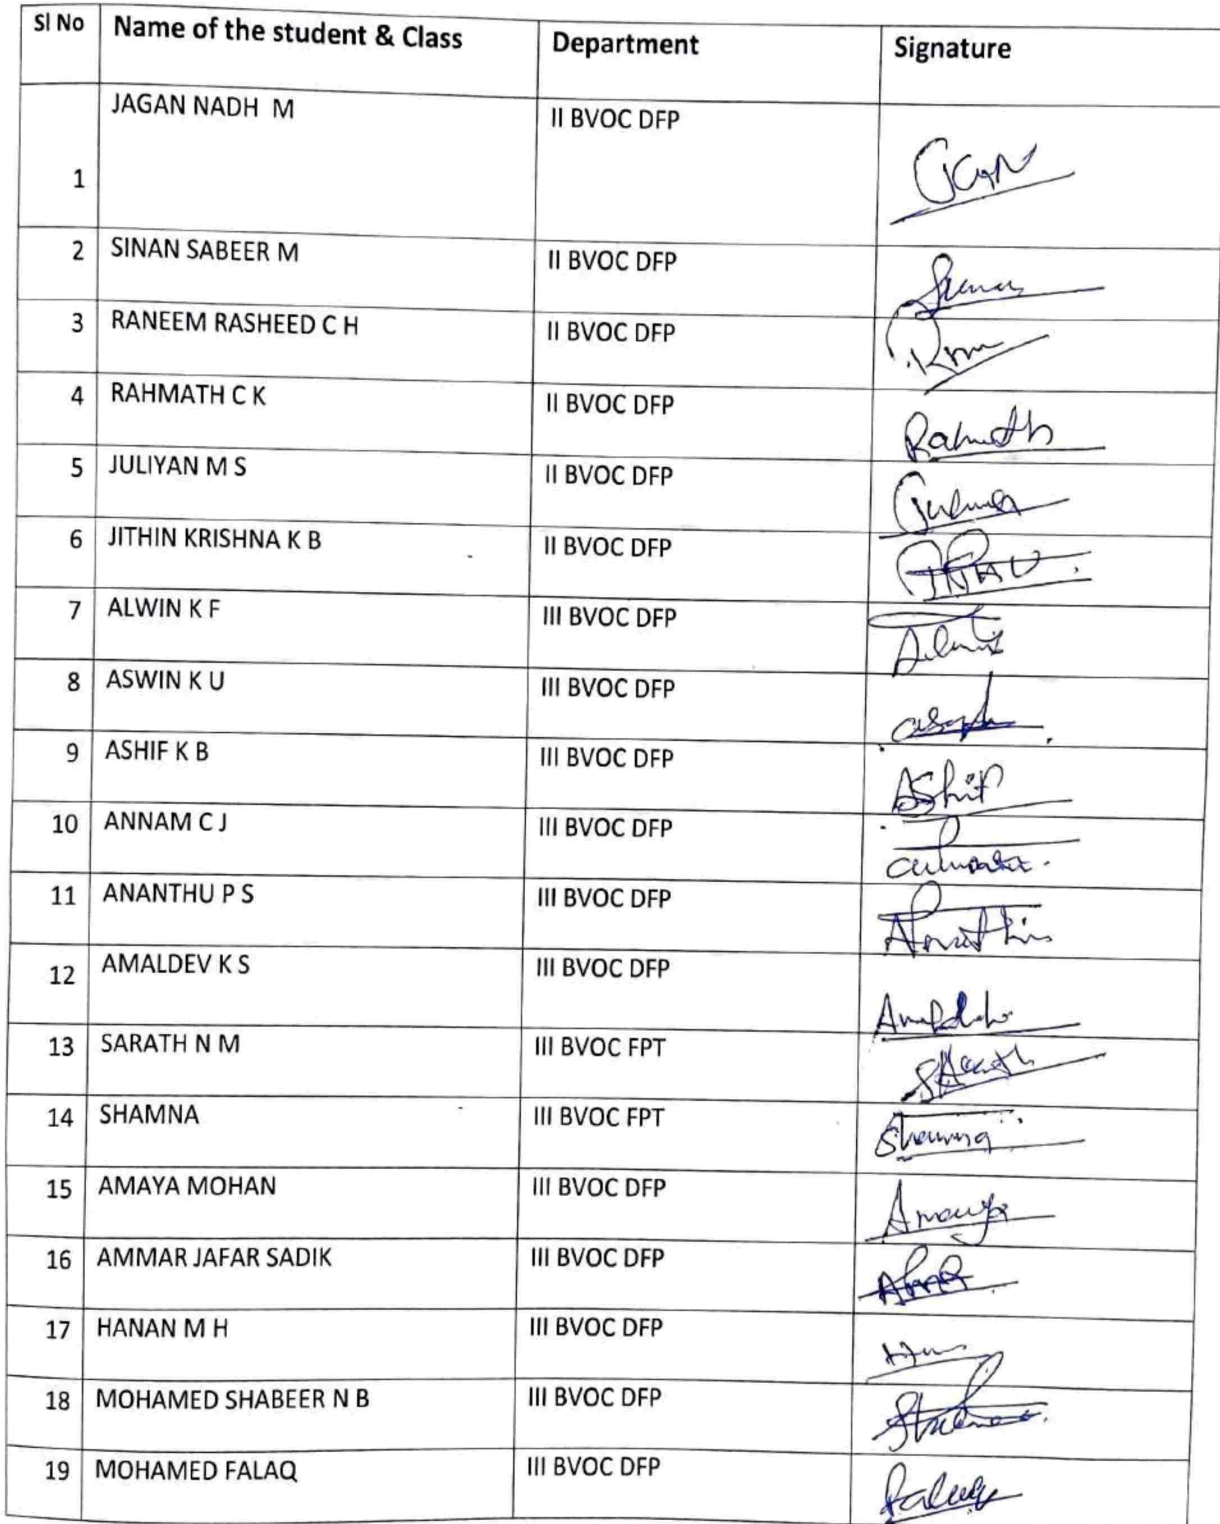 Sl No Name of the student & Class Department Signature
JAGAN NADH M II BVOC DFP
1
2 SINAN SABEER M II BVOC DFP
3 RANEEM RASHEED C H II BVOC DFP
4 RAHMATH C K II BVOC DFP Rahmath
5 JULIYAN M S II BVOC DFP
6 JITHIN KRISHNA K B II BVOC DFP
7 ALWIN K F III BVOC DFP
8 ASWIN K U III BVOC DFP
9 ASHIF K B III BVOC DFP Ashif
10 ANNAM C J III BVOC DFP
11 ANANTHU P S III BVOC DFP
12 AMALDEV K S III BVOC DFP
13 SARATH N M III BVOC FPT
14 SHAMNA III BVOC FPT
15 AMAYA MOHAN III BVOC DFP Amaya
16 AMMAR JAFAR SADIK III BVOC DFP
17 HANAN M H III BVOC DFP
18 MOHAMED SHABEER N B III BVOC DFP
19 MOHAMED FALAQ III BVOC DFP